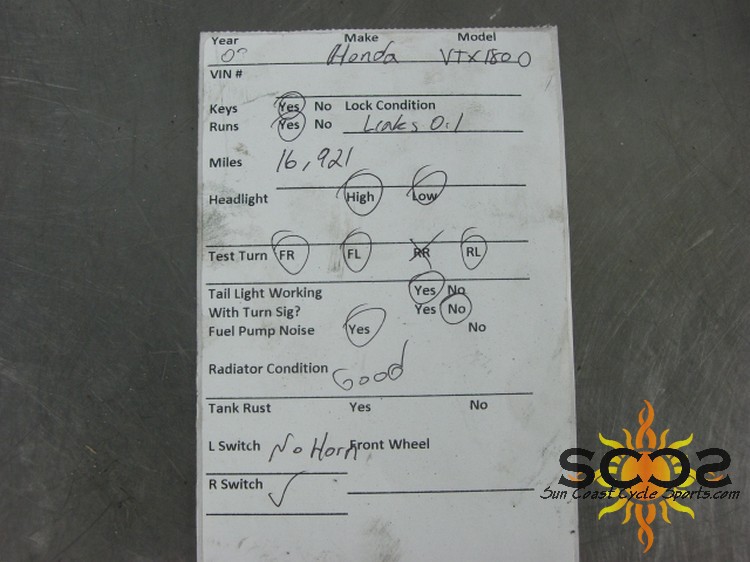 Year Make Model
Honda VTX1800
VIN #
Keys Yes No Lock Condition
Runs Yes No Leaks Oil
Miles 16,921
Headlight High Low
Test Turn FR FL RR RL
Tail Light Working Yes No
With Turn Sig? Yes No
Fuel Pump Noise Yes No
Radiator Condition Good
Tank Rust Yes No
L Switch No Horn Front Wheel
R Switch ✓
SCCS
Sun Coast Cycle Sports.com